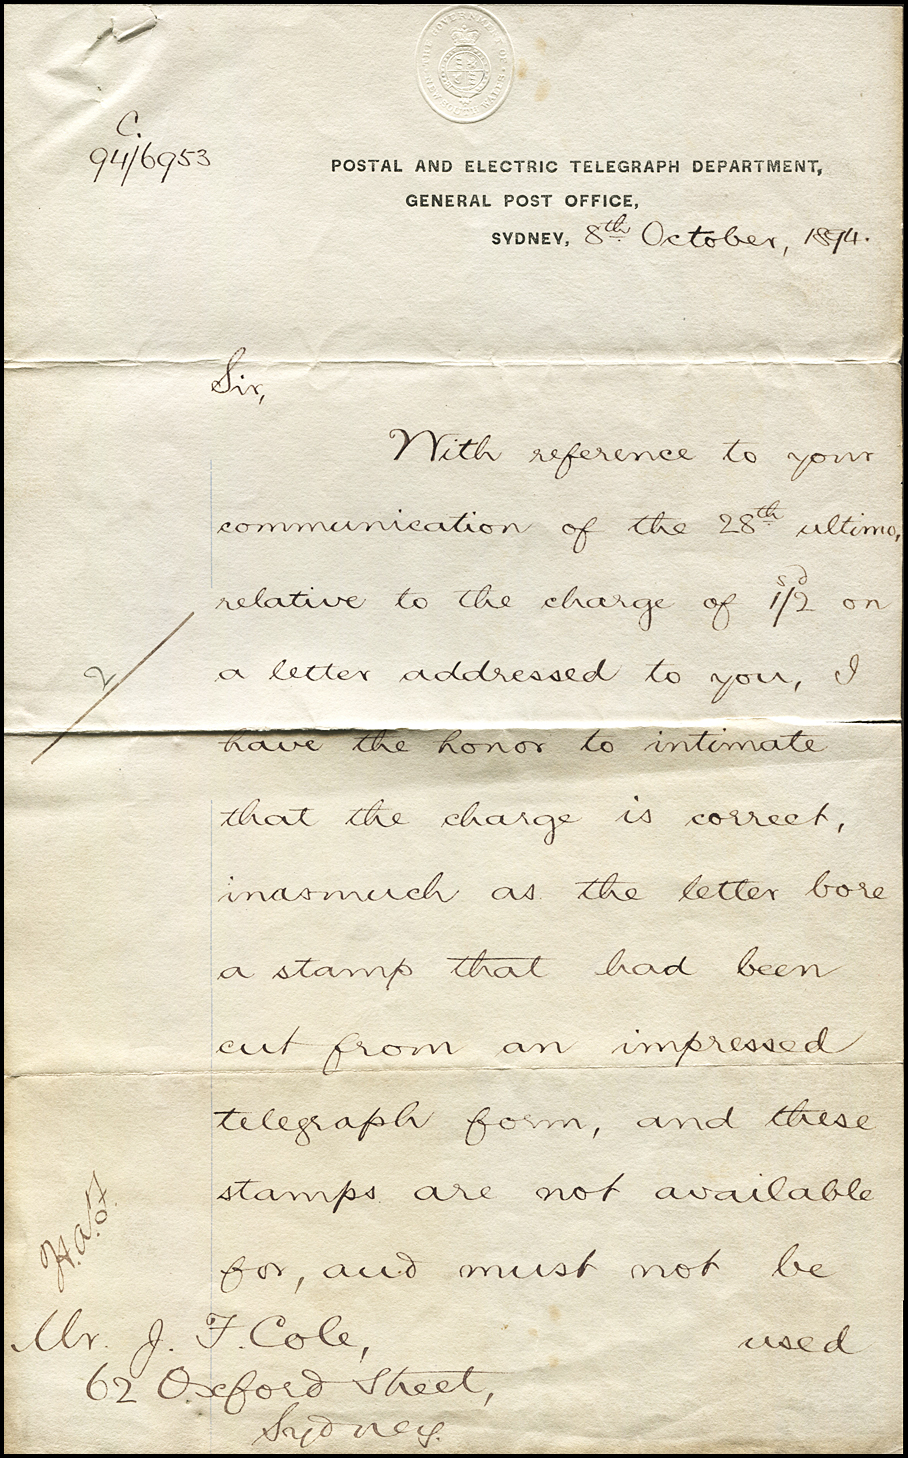 THE GOVERNMENT OF NEW SOUTH WALES
C.
94/6953
POSTAL AND ELECTRIC TELEGRAPH DEPARTMENT,
GENERAL POST OFFICE,
SYDNEY, 8th October, 1894.
Sir,
With reference to your
communication of the 28th ultimo,
relative to the charge of 1s/2d on
a letter addressed to you, I
have the honor to intimate
that the charge is correct,
inasmuch as the letter bore
a stamp that had been
cut from an impressed
telegraph form, and these
stamps are not available
for, and must not be
used
Mr. J. F. Cole,
62 Oxford Street,
Sydney.
2